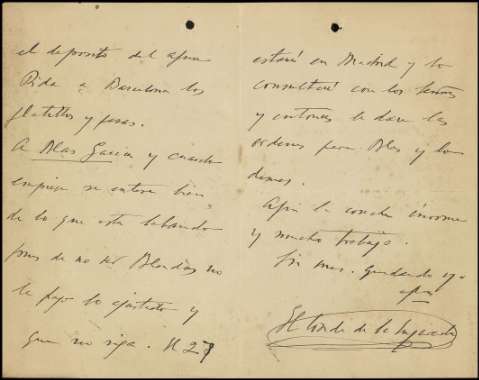 el deposito del agua
Pida a Barcelona los
platillos y pesas.
A Blas Garcia y cuando
empiece se entere bien,
de lo que esta labrando
pues de no ser
le pago lo ajustado y
que no siga. El 27
estaré en Madrid y lo
consultaré con los
y entonces le daré las
ordenes para Blas y los
demas.
la noche
y mucho trabajo.
Sin mas.
El Conde de la